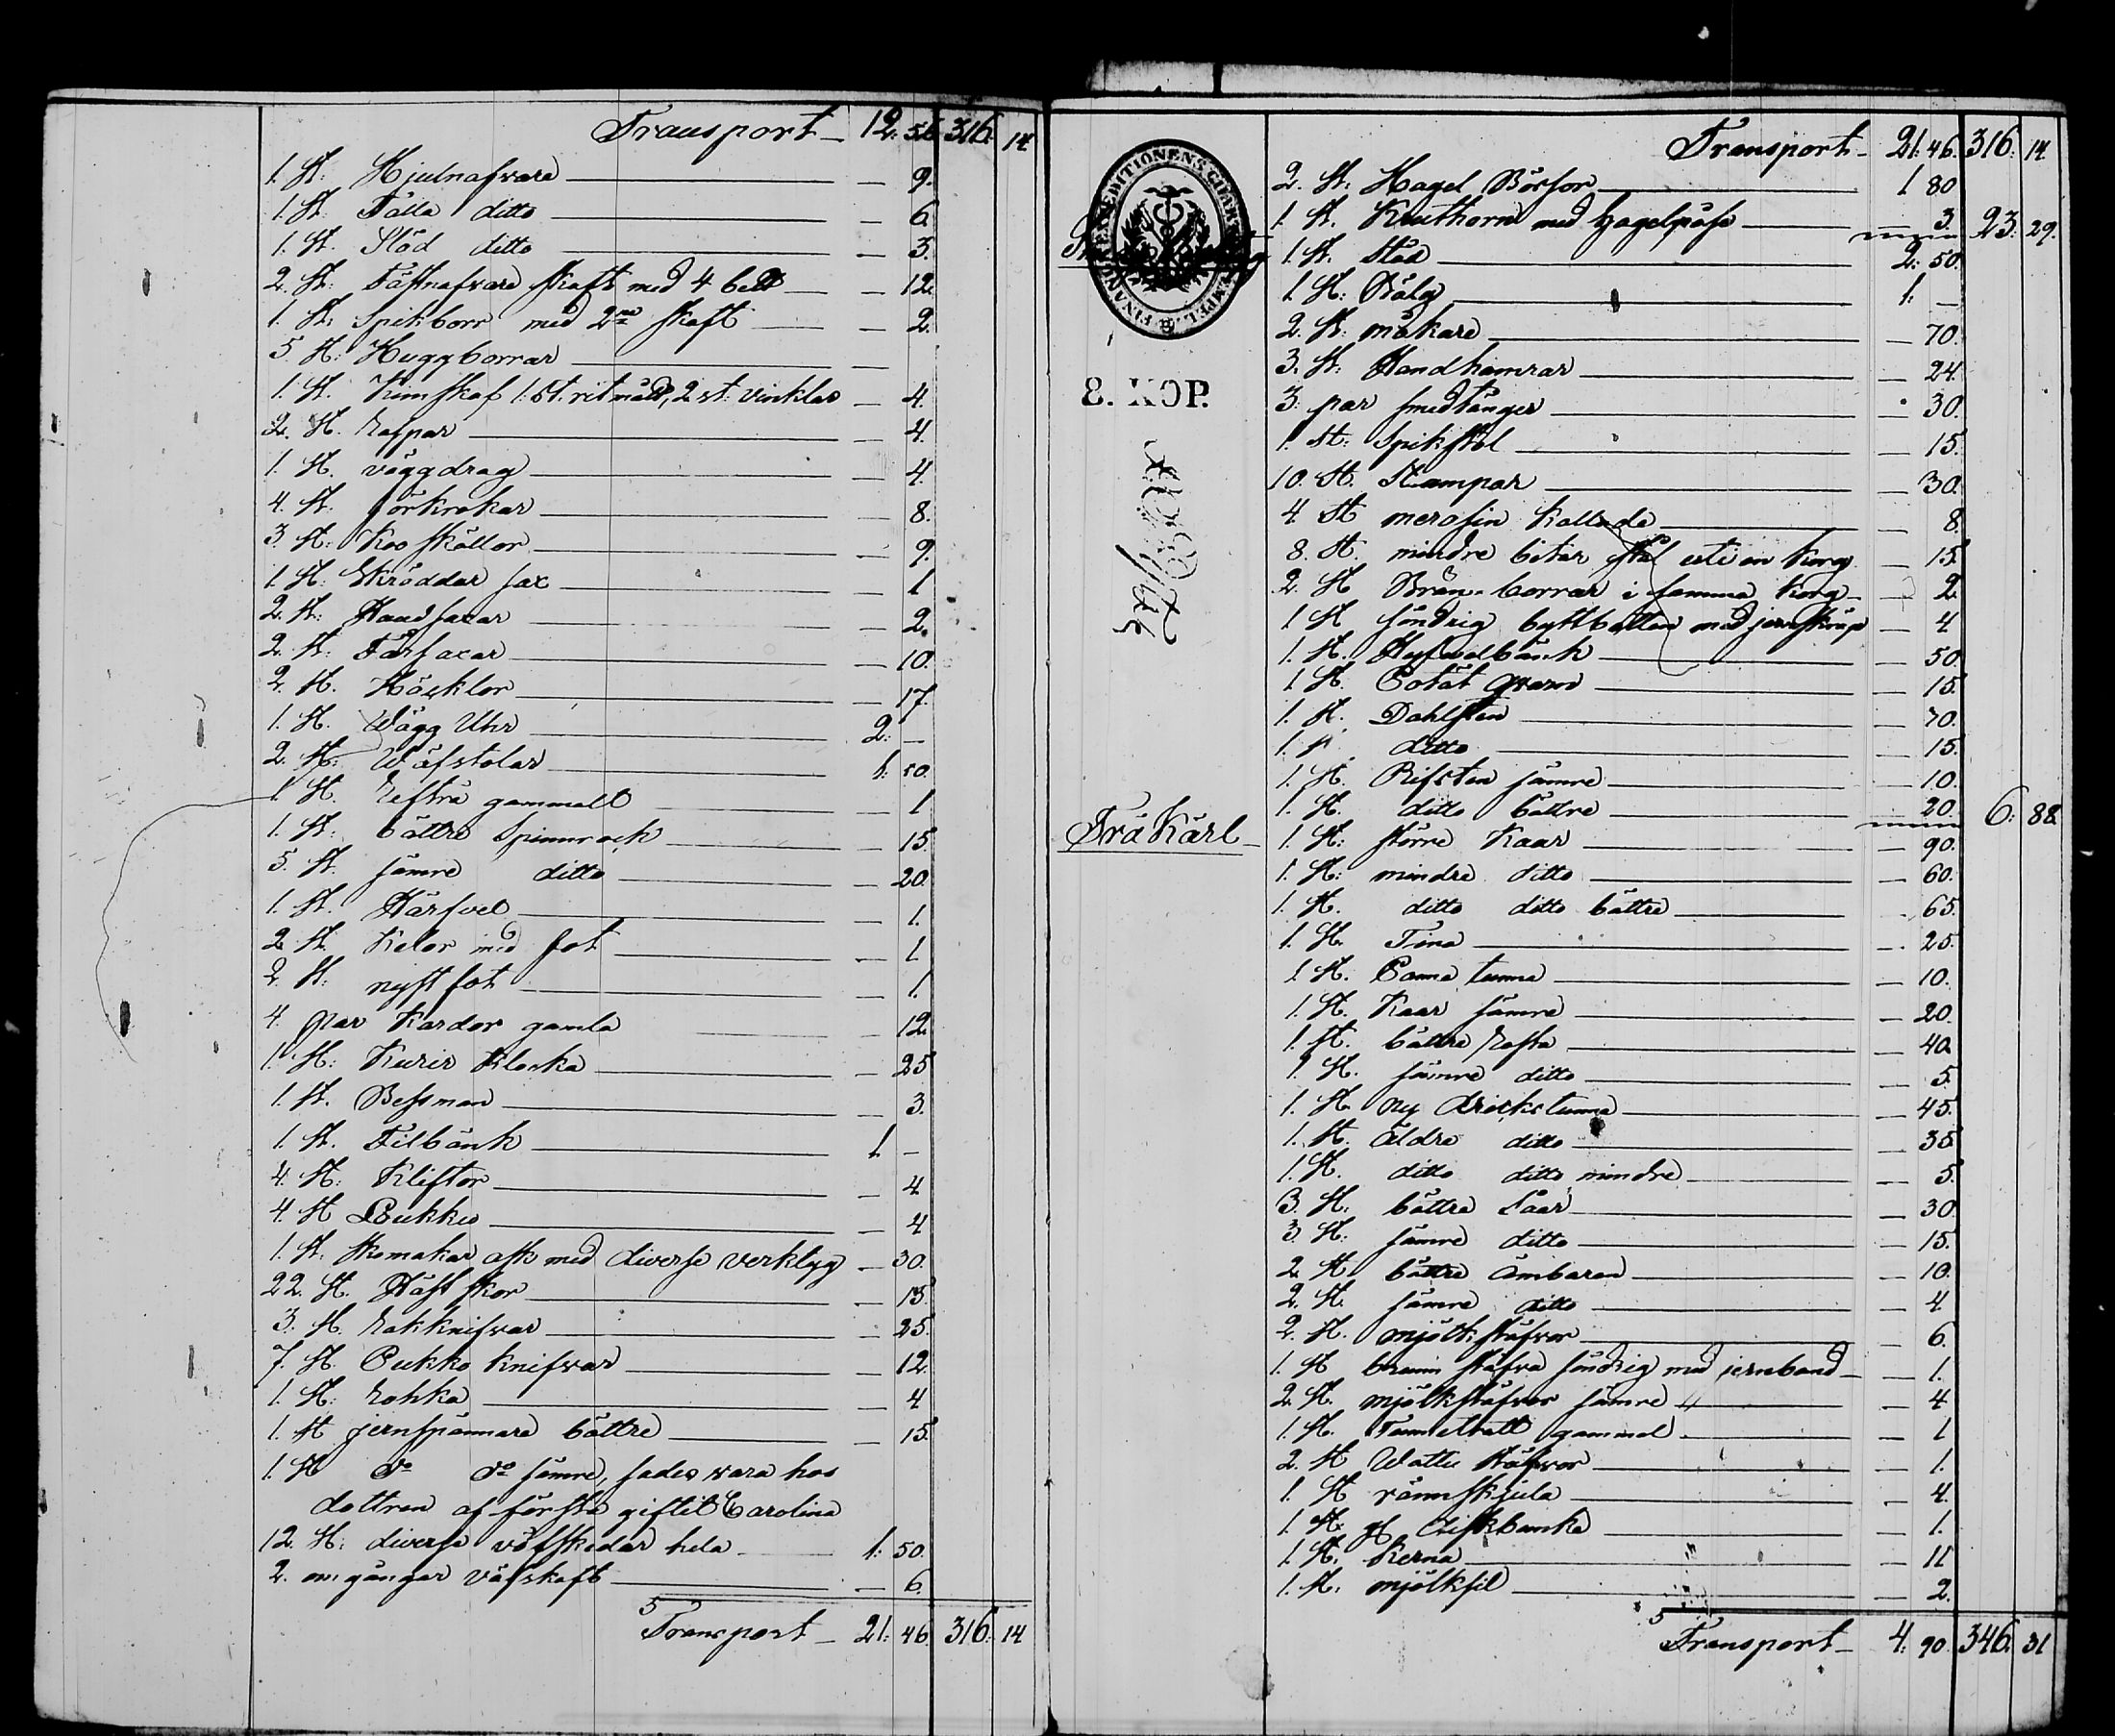 Transport 12. 56 316. 14
1. St. Hjulnafvare — 9.
1. St. Fälla ditto — 6.
1. St. Slöd ditto — 3.
2. St. Fästnafvare skaft med 4 bett — 12.
1. St. Spikborr med 2ne skaft — 2.
5. St. Huggborrar —
1. St. Kimskaf 1. St. ritmått, 2 st. vinklar — 4.
2. St. — 4.
1. St. väggdrag — 4.
4. St. — 8.
3. St. Koo skällor — 9.
1. St. Skräddar sax — 1
2. St. Handsaxar — 2.
2. St. Fårsaxar — 10.
2. St. Häcklor — 17.
1. St. Wägg Uhr 2. —
2. St. Wäfstolar 1. 50.
1. St. gammalt — 1
1. St. bättre Spinnrock — 15.
5. St. sämre ditto — 20.
1. St. Härfvel — 1.
2. St. med fot — 1
2. St. nystfot — 1.
4. par Kardor gamla — 12.
1. St. Kurir Klocka — 25
1. St. Bessman — 3.
1. St. Filbänk 1. —
4. St. — 4
4. St. — 4
1. St. Skomakar ask med diverse verktyg — 30.
22. St. Häst skor — 15.
3. St. — 25.
7. St. Pukko knifvar — 12.
1. St. — 4
1. St. jernspännare bättre — 15.
1. St. do do sämre, sades vara hos
dottren af första giftet Carolina
12. St. diverse väfskedar hela 1. 50.
2. omgångar väfskaft — 6.
Transport 21. 46. 316. 14
Transport 21. 46. 316. 14.
2. St. Hagel Bössor 1 80
1. St. Kruthorn med hagelpåse — 3. 23. 29.
1. St. Städ 2. 50.
1. St. Bälg 1. —
2. St. mokare — 70.
3. St. Handhamrar — 24.
3. par smedtänger — 30.
1. St. Spikstol — 15.
10. St. Stampar — 30.
4. St. merasin kallade — 8
8. St. mindre bitar stål uti en korg — 15.
2. St. Brän-borrar i samma korg — 2.
1 St. söndrig byttbotten med jernskrap — 4
1. St. Hyfvelbänk — 50.
1 St. Potät qvarn — 15.
1. St. Dahlsten — 70.
1. St. ditto — 15.
1. St. Rifsten sämre — 10.
1. St. ditto bättre — 20. 6. 88.
Trä Kärl
1. St. större Kaar — 90.
1. St. mindre ditto — 60.
1. St. ditto ditto bättre — 65.
1. St. Tina — 25.
1. St. Panna tunna — 10.
1. St. Kaar sämre — 20.
1. St. bättre — 40.
1. St. sämre ditto — 5.
1. St. ny Drickstunna — 45.
1. St. Äldre ditto — 35.
1. St. ditto ditto mindre — 5.
3. St. bättre Såar — 30.
3. St. sämre ditto — 15.
2. St. bättre Ämbaren — 10.
2. St. sämre ditto — 4.
2. St. mjölkstäfvor — 6.
1. St. stäfva söndrig med jernband — 1.
2. St. mjölkstäfvor sämre — 4
1. St. gammal — 1
2. St. Watten stäfvor — 1.
1. St. rännskjula — 4.
1. St. — 1.
1. St. Kerna — 11
1. St. mjölksil — 2.
Transport 4. 90. 346. 31
FINANS EXPEDITIONENS CHARTÆ STEMPEL
8. KOP.